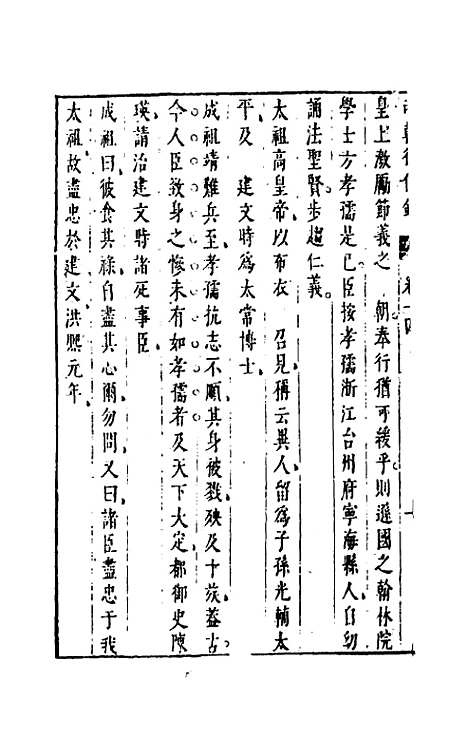 皇上激勵節義之 朝奉行猶可緩乎則遜國之翰林院
學士方孝孺是已臣按孝孺浙江台州府寧海縣人自幼
誦法聖賢步趨仁義
太祖高皇帝以布衣 召見稱云異人留為子孫光輔太
平及 建文時為太常博士
成祖靖難兵至孝孺抗志不順其身被戮殃及十族蓋古
今人臣致身之慘未有如孝孺者及天下大定都御史陳
瑛請治建文時諸死事臣
成祖曰彼食其祿自盡其心爾勿問又曰諸臣盡忠于我
太祖故盡忠於建文洪熙元年